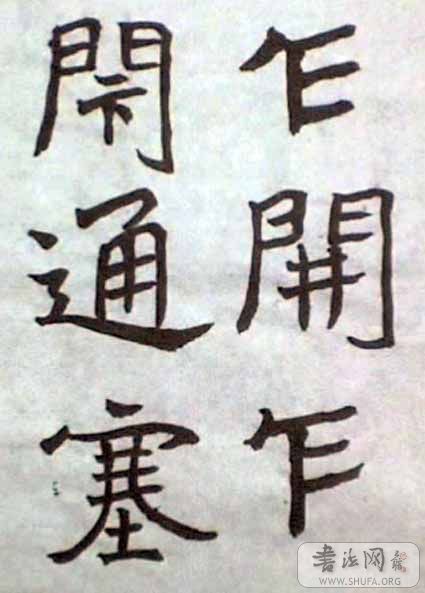 乍開乍
閇通塞
書法网
WWW.SHUFA.ORG